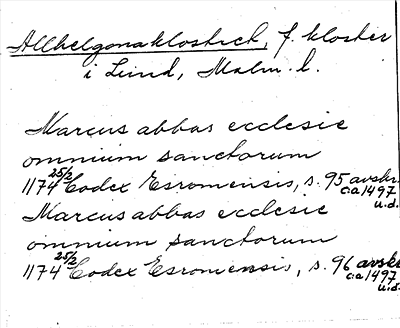 Allhelgonaklostret, f. kloster
i Lund, Malm. l.
Marcus abbas ecclesie
omnium sanctorum
1174 25/2 Codex Esromensis, s. 95 avskr. ca 1497 u.d.
Marcus abbas ecclesie
omnium sanctorum
1174 25/2 Codex Esromensis, s. 96 avskr. ca 1497 u.d.